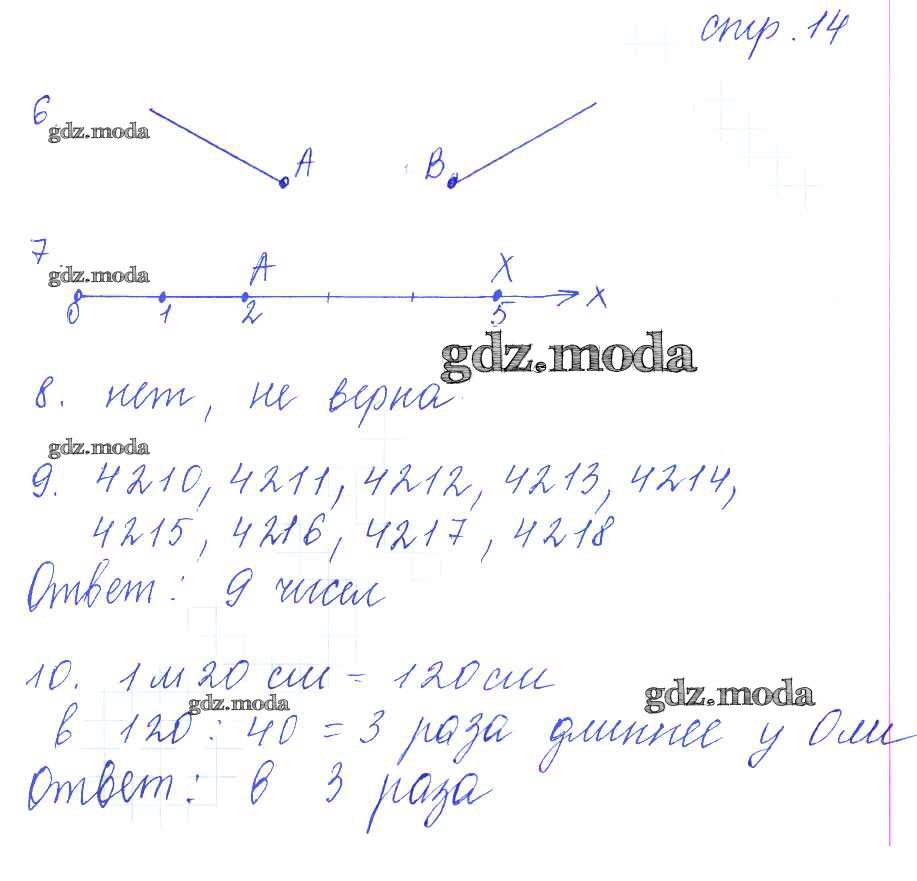 стр. 14
6
gdz.moda
A
B
7
gdz.moda
A
X
0 1 2 5 x
gdz.moda
8. нет, не верна
gdz.moda
9. 4210, 4211, 4212, 4213, 4214,
4215, 4216, 4217, 4218
Ответ: 9 чисел
10. 1 м 20 см = 120 см
gdz.moda
gdz.moda
в 120 : 40 = 3 раза длиннее у Оли
Ответ: в 3 раза